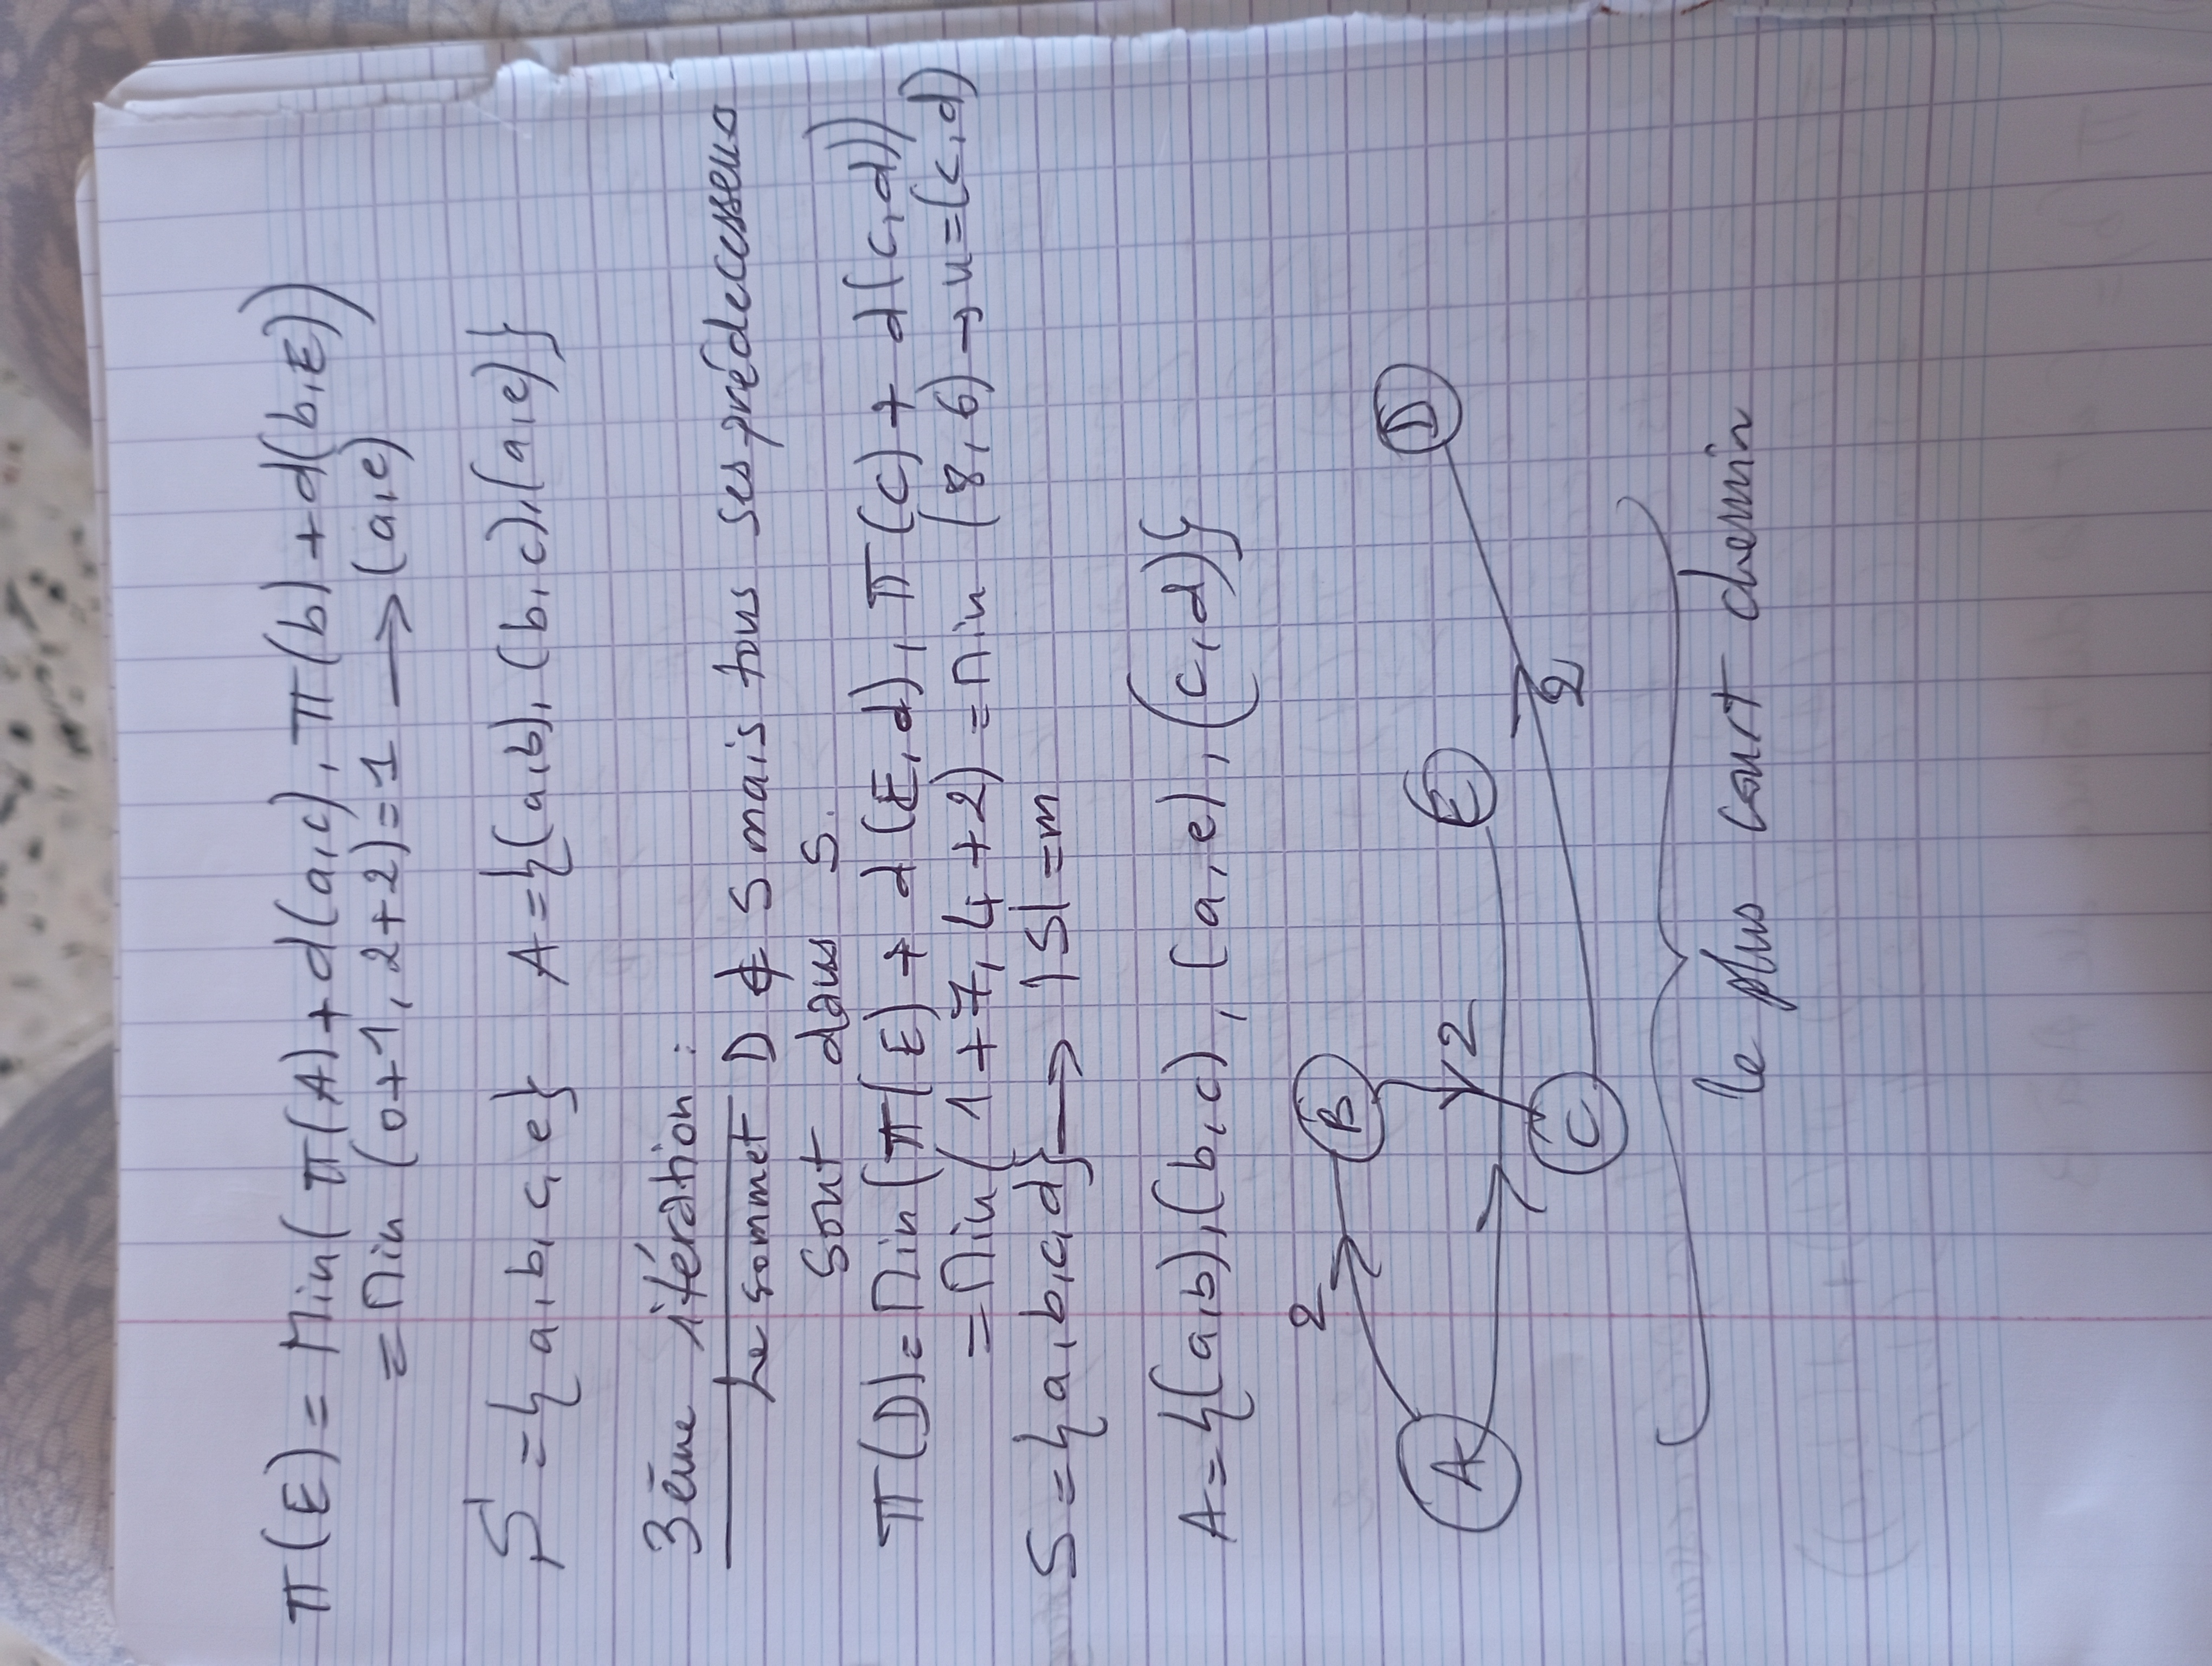 π(E) = Min(π(A) + d(a,c), π(b) + d(b,E))
= Min (0+1, 2+2) = 1 → (a,e)
S = { a, b, c, e} A = {(a,b), (b,c), (a,e)}
3ème itération :
Le sommet D ∉ S mais tous ses prédécesseus
sont dans S.
π(D) = Min(π(E) + d(E,d), π(c) + d(c,d))
= Min(1+7, 4+2) = Min(8,6) → u=(c,d)
S = { a, b, c, d} → |S| = m
A = {(a,b), (b,c), (a,e), (c,d)}
2
B
A
2
E
D
C
2
le plus court chemin